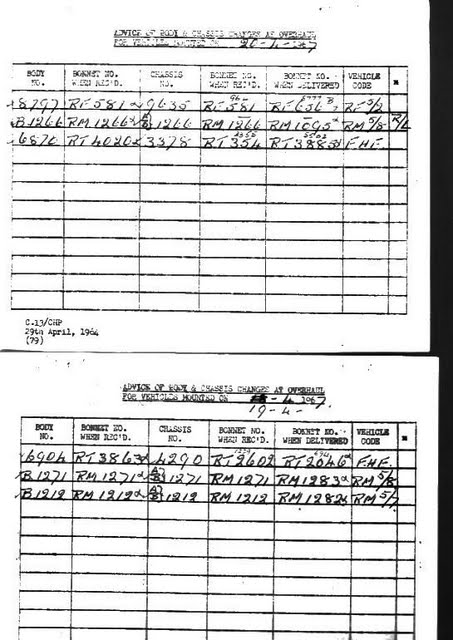 ADVICE OF BODY & CHASSIS CHANGES AT OVERHAUL
FOR VEHICLES MOUNTED ON 20-4-1967
BODY NO. BONNET NO. WHEN REC'D. CHASSIS NO. BONNET NO. WHEN REC'D. BONNET NO. WHEN DELIVERED VEHICLE CODE
8797 RF 581 9635 RF 581 RF 656 RF 5/2
B1266 RM 1266 B1266 RM 1266 RM 1095 RM 5/8
6870 RT 4020 3378 RT 354 RT 3885 F.H.F.
C.13/CHP
29th April, 1964
(79)
ADVICE OF BODY & CHASSIS CHANGES AT OVERHAUL
FOR VEHICLES MOUNTED ON -4-1967.
19-4-
BODY NO. BONNET NO. WHEN REC'D. CHASSIS NO. BONNET NO. WHEN REC'D. BONNET NO. WHEN DELIVERED VEHICLE CODE
6904 RT 3863 4290 RT 2602 RT 2046 F.H.F.
B1271 RM 1271 B1271 RM 1271 RM 1283 RM 5/8
B1212 RM 1212 B1212 RM 1212 RM 1282 RM 5/7